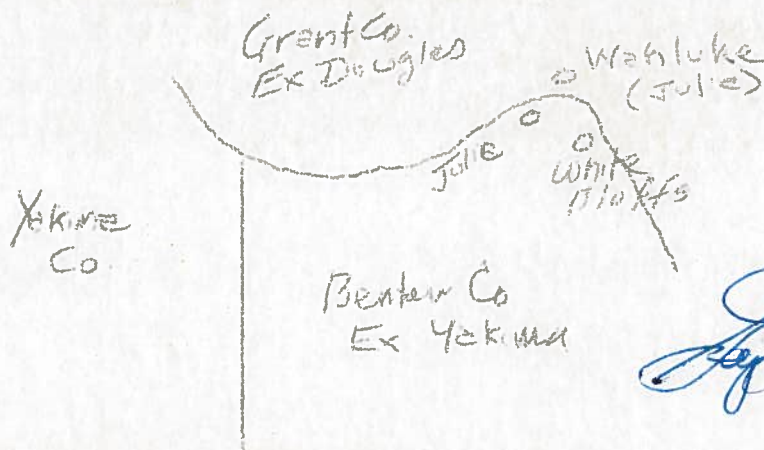 Grant Co.
Ex Douglas
Wahluke
(Julie)
Julie
White
Bluffs
Yakima
Co
Benton Co
Ex Yakima